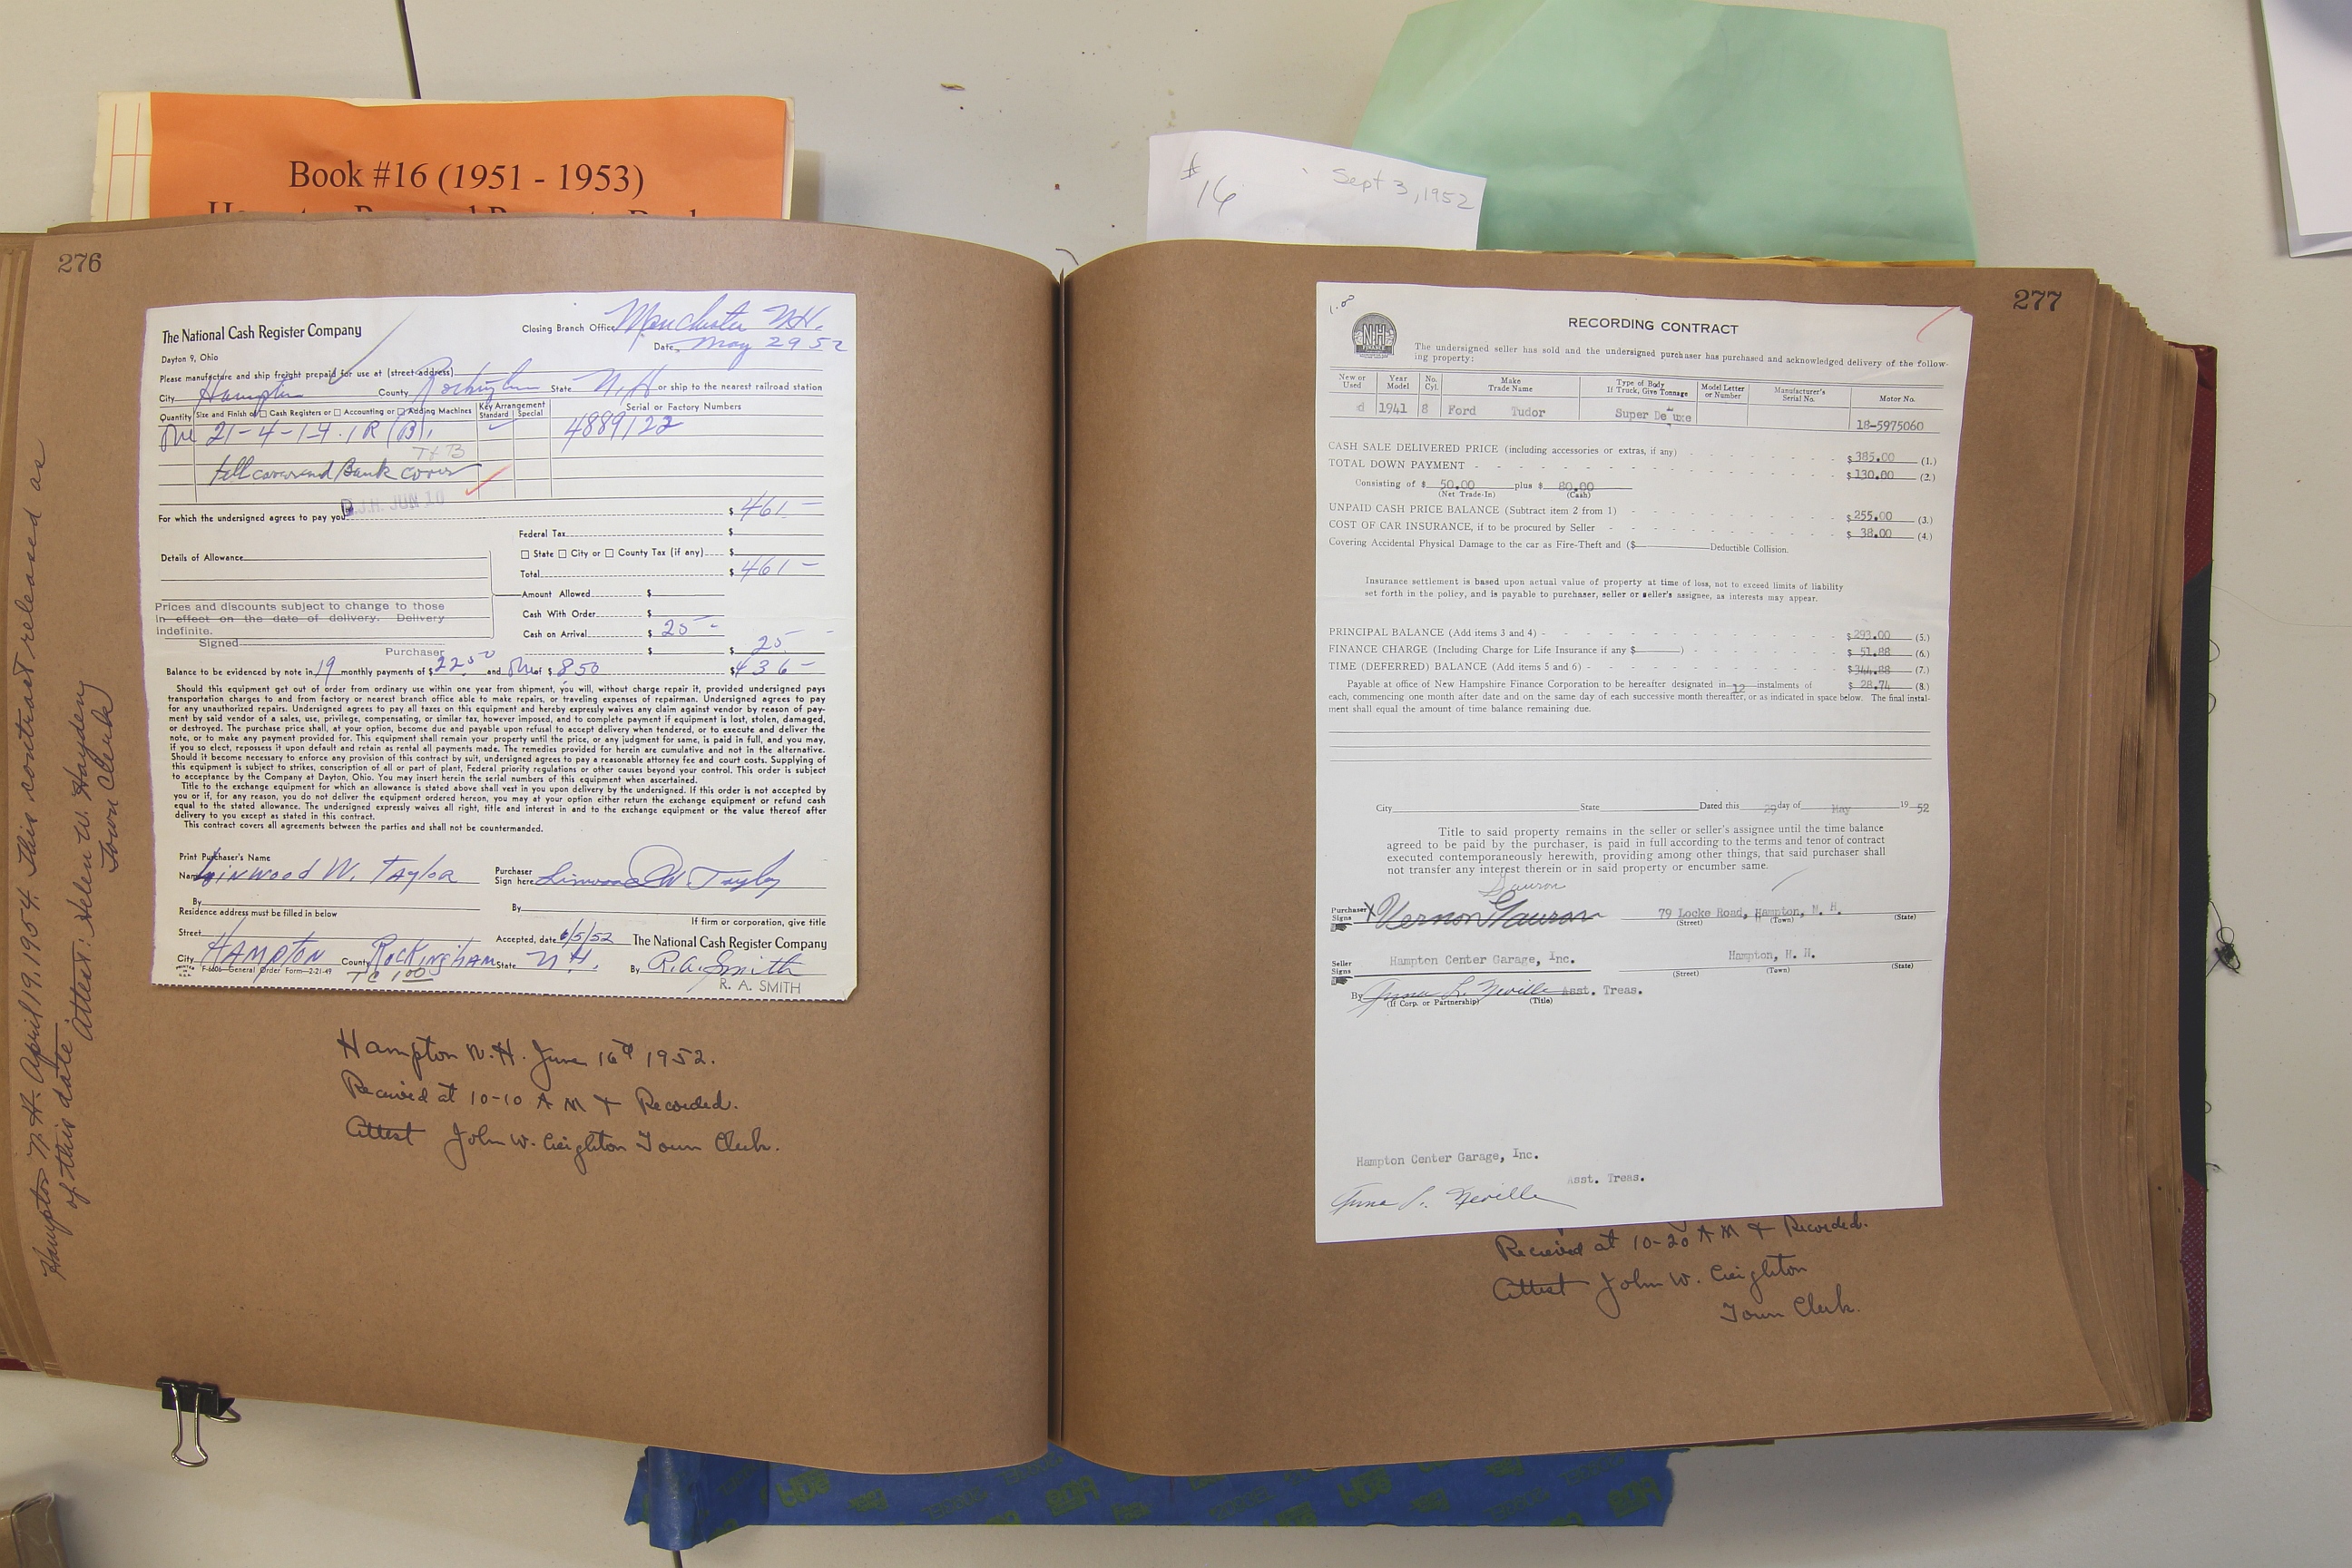 Book #16 (1951 - 1953)
# 16
Sept 3, 1952
276
The National Cash Register Company
Dayton 9, Ohio
Closing Branch Office Manchester N.H.
Date, May 29 52
Please manufacture and ship freight prepaid for use at (street address)
City Hampton County Rockingham State N.H or ship to the nearest railroad station
Quantity Size and Finish of □ Cash Registers or □ Accounting or □ Adding Machines Key Arrangement Standard Special Serial or Factory Numbers
One 21-4-1-4.1R(B). 4889122
Bank cover
J.H. JUN 10
For which the undersigned agrees to pay you $ 461 -
Federal Tax $
Details of Allowance
□ State □ City or □ County Tax (if any) $
Total $ 461 -
Amount Allowed $
Prices and discounts subject to change to those
in effect on the date of delivery. Delivery
indefinite.
Cash With Order $
Cash on Arrival $ 25 -
Signed
Purchaser $ 25. -
Balance to be evidenced by note in 19 monthly payments of $ 22 50 and One of $ 8 50 $ 436 -
Should this equipment get out of order from ordinary use within one year from shipment, you will, without charge repair it, provided undersigned pays
transportation charges to and from factory or nearest branch office able to make repairs, or traveling expenses of repairman. Undersigned agrees to pay
for any unauthorized repairs. Undersigned agrees to pay all taxes on this equipment and hereby expressly waives any claim against vendor by reason of pay-
ment by said vendor of a sales, use, privilege, compensating, or similar tax, however imposed, and to complete payment if equipment is lost, stolen, damaged,
or destroyed. The purchase price shall, at your option, become due and payable upon refusal to accept delivery when tendered, or to execute and deliver the
note, or to make any payment provided for. This equipment shall remain your property until the price, or any judgment for same, is paid in full, and you may,
if you so elect, repossess it upon default and retain as rental all payments made. The remedies provided for herein are cumulative and not in the alternative.
Should it become necessary to enforce any provision of this contract by suit, undersigned agrees to pay a reasonable attorney fee and court costs. Supplying of
this equipment is subject to strikes, conscription of all or part of plant, Federal priority regulations or other causes beyond your control. This order is subject
to acceptance by the Company at Dayton, Ohio. You may insert herein the serial numbers of this equipment when ascertained.
Title to the exchange equipment for which an allowance is stated above shall vest in you upon delivery by the undersigned. If this order is not accepted by
you or if, for any reason, you do not deliver the equipment ordered hereon, you may at your option either return the exchange equipment or refund cash
equal to the stated allowance. The undersigned expressly waives all right, title and interest in and to the exchange equipment or the value thereof after
delivery to you except as stated in this contract.
This contract covers all agreements between the parties and shall not be countermanded.
Print Purchaser's Name
Name Linwood W. Taylor Purchaser Sign here Linwood W. Taylor
By By
Residence address must be filled in below If firm or corporation, give title
Street Accepted, date 6/5/52 The National Cash Register Company
City HAMPTON County Rockingham State N.H. By R.A. Smith
F-6606-General Order Form-2-21-49 TC 1.00 R. A. SMITH
Hampton N.H. June 16th 1952.
Received at 10-10 A M & Recorded.
Attest John W. Creighton Town Clerk.
Hampton N.H. April 19, 1954. This contract released as
of this date.
Attest: Helen W. Hayden
Town Clerk
277
1.00
NH
FINANCE
RECORDING CONTRACT
The undersigned seller has sold and the undersigned purchaser has purchased and acknowledged delivery of the follow-
ing property:
New or Used Year Model No. Cyl. Make Trade Name Type of Body If Truck, Give Tonnage Model Letter or Number Manufacturer's Serial No. Motor No.
d 1941 8 Ford Tudor Super Deluxe 18-5975060
CASH SALE DELIVERED PRICE (including accessories or extras, if any) $ 385.00 (1.)
TOTAL DOWN PAYMENT $ 130.00 (2.)
Consisting of $ 50.00 plus $ 80.00
(Net Trade-In) (Cash)
UNPAID CASH PRICE BALANCE (Subtract item 2 from 1) $ 255.00 (3.)
COST OF CAR INSURANCE, if to be procured by Seller $ 38.00 (4.)
Covering Accidental Physical Damage to the car as Fire-Theft and ($ Deductible Collision.
Insurance settlement is based upon actual value of property at time of loss, not to exceed limits of liability
set forth in the policy, and is payable to purchaser, seller or seller's assignee, as interests may appear.
PRINCIPAL BALANCE (Add items 3 and 4) $ 293.00 (5.)
FINANCE CHARGE (Including Charge for Life Insurance if any $ ) $ 51.88 (6.)
TIME (DEFERRED) BALANCE (Add items 5 and 6) $ 344.88 (7.)
Payable at office of New Hampshire Finance Corporation to be hereafter designated in 12 instalments of $ 28.74 (8.)
each, commencing one month after date and on the same day of each successive month thereafter, or as indicated in space below. The final instal-
ment shall equal the amount of time balance remaining due.
City State Dated this 29 day of May 19 52
Title to said property remains in the seller or seller's assignee until the time balance
agreed to be paid by the purchaser, is paid in full according to the terms and tenor of contract
executed contemporaneously herewith, providing among other things, that said purchaser shall
not transfer any interest therein or in said property or encumber same.
Gauron
Purchaser Signs X Vernon Gauron 79 Locke Road, Hampton, N. H.
(Street) (Town) (State)
Seller Signs Hampton Center Garage, Inc. Hampton, H. H.
(Street) (Town) (State)
By Anna L. Neville Asst. Treas.
(If Corp. or Partnership) (Title)
Hampton Center Garage, Inc.
Asst. Treas.
Anna L. Neville
Received at 10-20 A M & Recorded.
Attest John W. Creighton
Town Clerk.